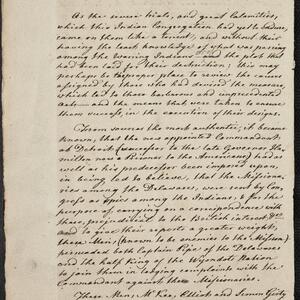 As the severe trials, and great Calamities,
which this Indian Congregation had yet to endure,
came on them like a torrent, and without their
having the least knowledge of what was passing
among the Warring Indians and the plots that
had been laid for their destruction; it may
perhaps be the proper place to review the causes
assigned by those who had devised the measures,
which led to these base and unprecedented
Acts— and the means that were taken to ensure
them success, in the execution of their designs.
From sources the most authentic, it became
known, that the new appointed Commandant
at Detroit (successor to the late Governor Ha-
milton now a Prisoner to the Americans) had as
well as his predecessor been imposed upon,
in being led to believe, that the Missiona-
ries among the Delawares, were sent by Con-
gress as spies among the Indians & for the
purpose of carrying on a correspondence with
them, prejudicial to the British interest &c
and to give their reports a greater weight,
these Men (known to be enemies to the Mission)
persuaded both Captain Pipe of the Delawares
and the half King of the Wyandots Nation
to join them in lodging complaints with the
Commandant against these Missionaries.
These Men, McKee, Elliot and Simon Girty